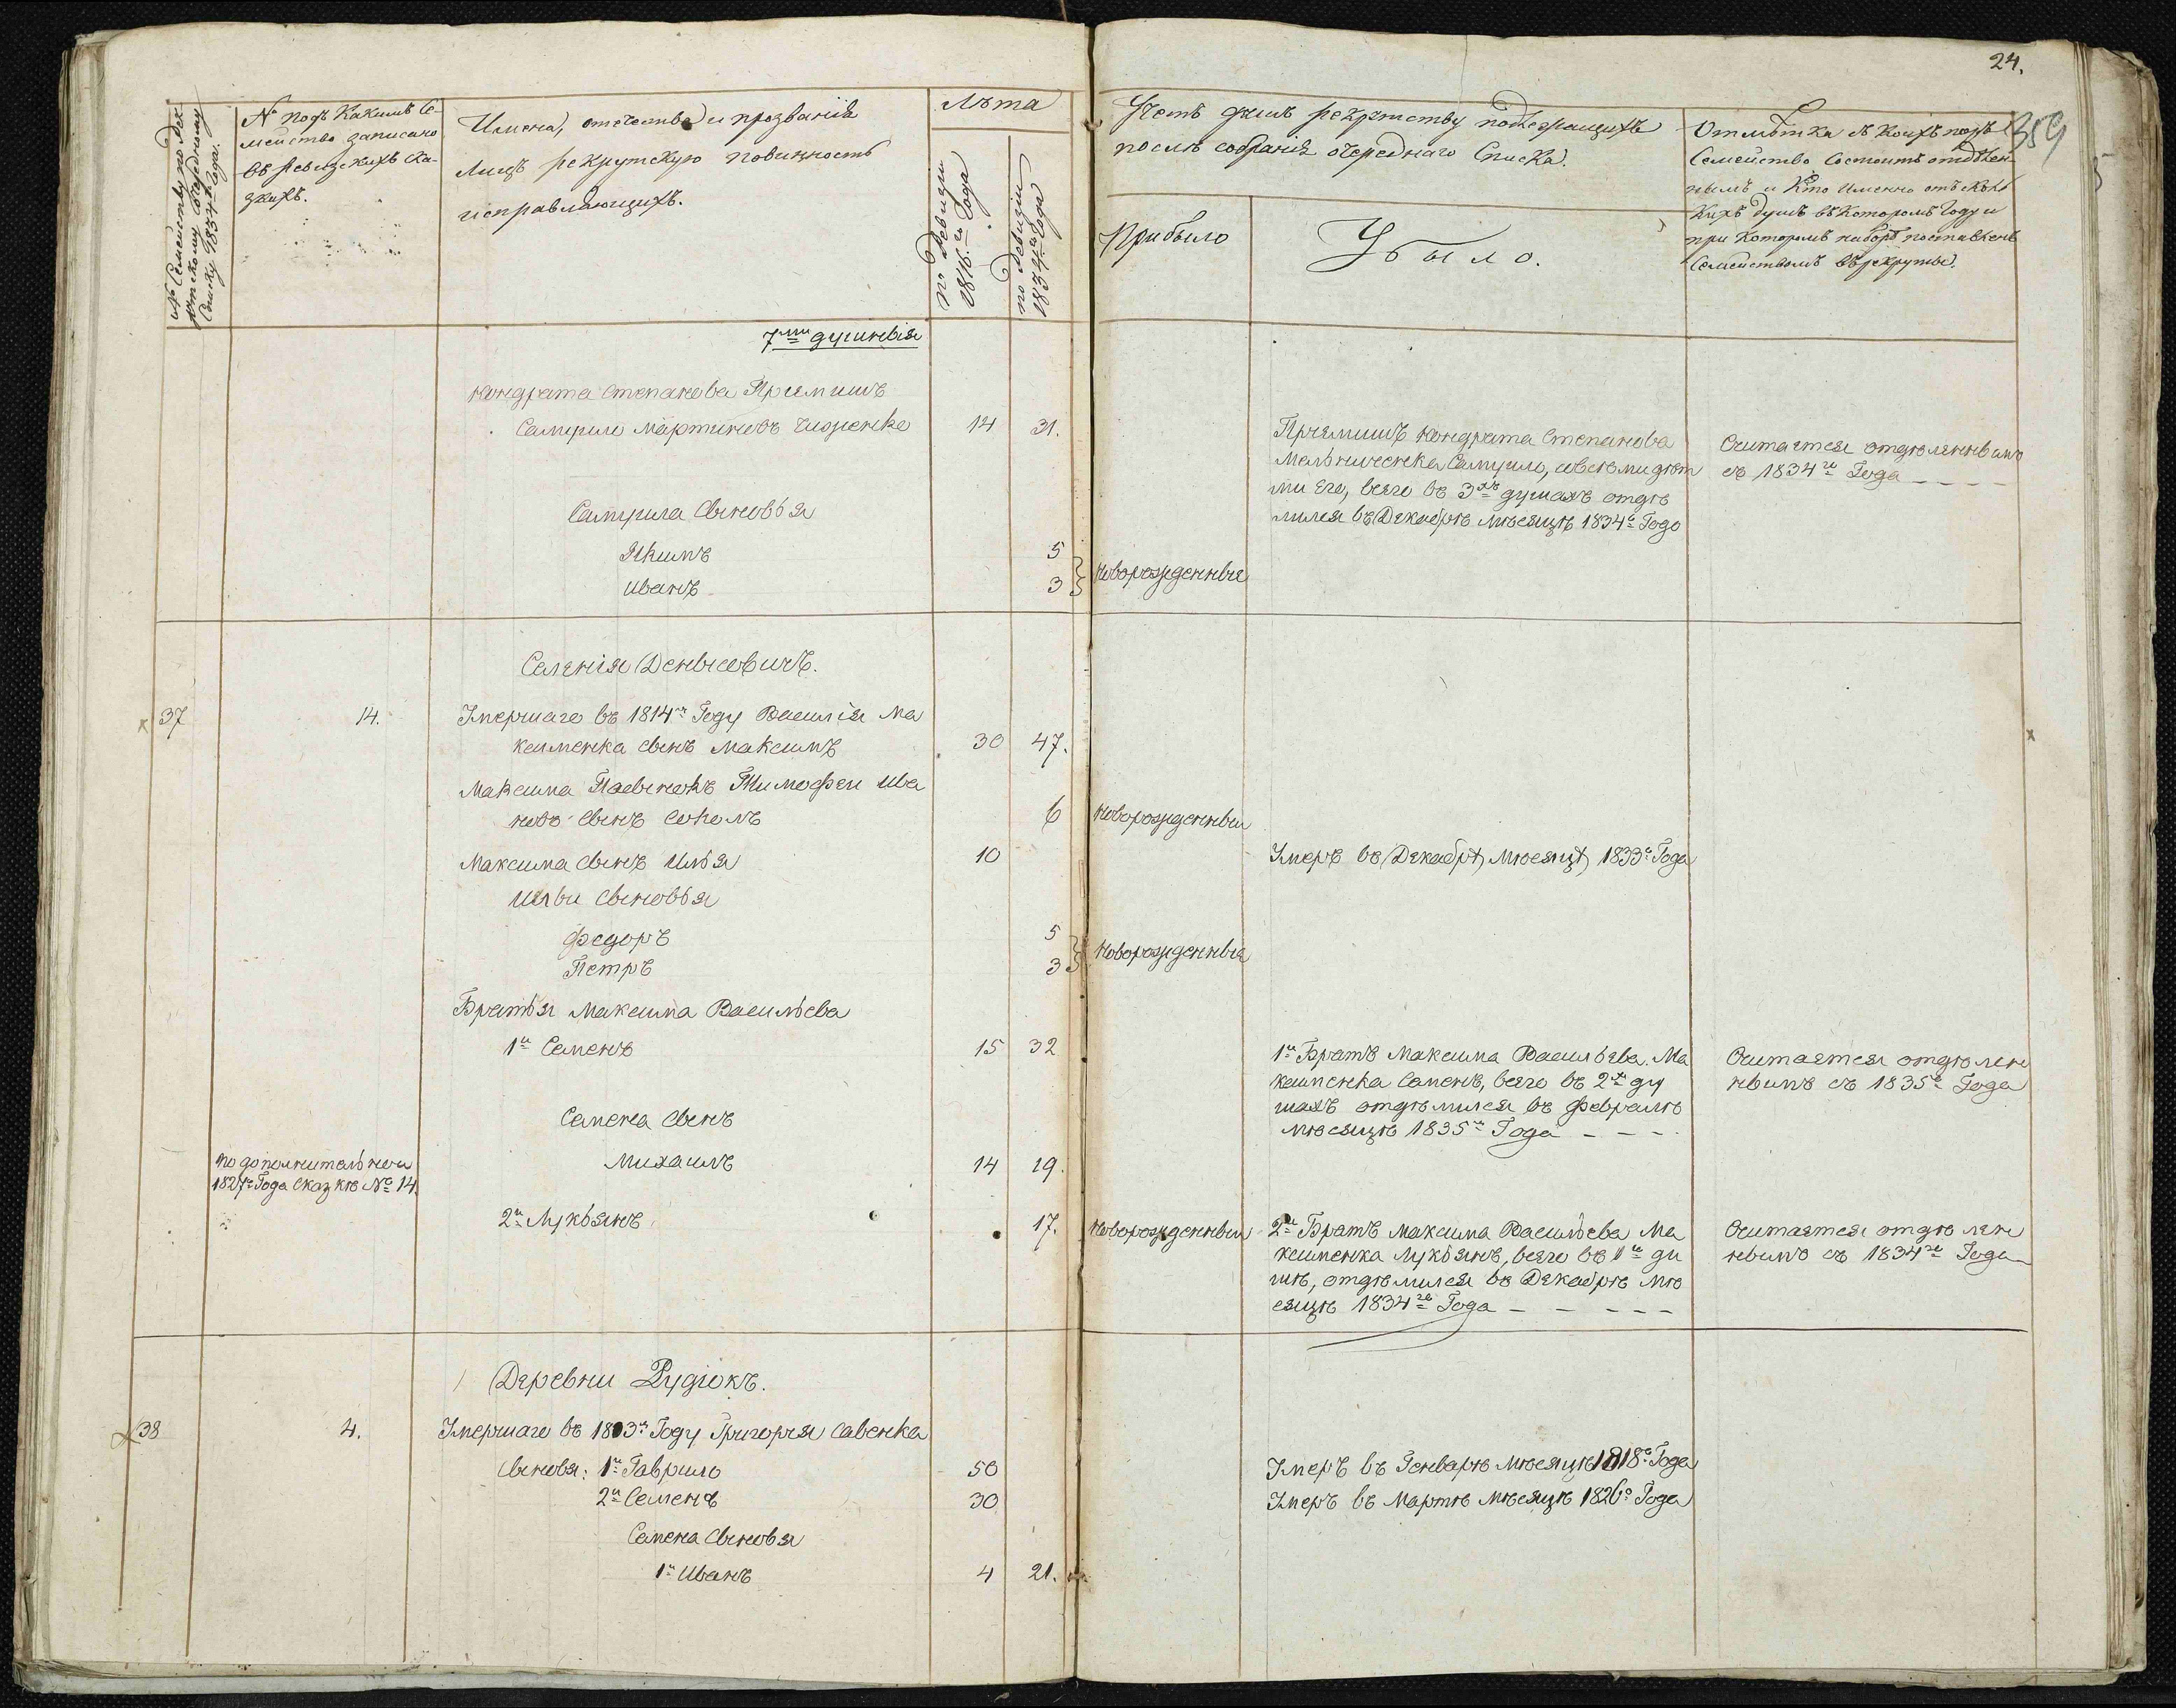 24.
359
№ Семейству по рек-
рутскому очередному
списку 1834го года.
№ подъ какимъ Се-
мейство записано
въ ревизскихъ ска-
зкахъ.
Имена, отечества и прозванія
лицъ рекрутскую повинность
исправляющихъ.
Лѣта
по ревизіи
1816.го Года
по ревизіи
1834.го года
Учетъ душъ рекрутству подлежащихъ
послѣ собранія очереднаго Списка.
Прибыло
Убыло.
Отмѣтка съ коихъ поръ
Семейство состоитъ отдѣлен-
нымъ и кто именно
душъ въ которомъ году и
при которомъ наборѣ поставленъ
семействомъ въ рекруты.
7ми душныя
Кондрата Степанова Пріемишъ
Самуило Мартиновъ 14 31.
Пріемишъ Кондрата Степанова
Мельниченка Самуило, съ двома дѣть
ми его, всего въ 3хъ душахъ отдѣ
лился въ Декабрѣ мѣсяцѣ 1834го Года
Считается отдѣленнымъ
съ 1834го Года
Самуила сыновья
Якимъ 5
Иванъ 3
новорожденныя
Селенія Денысовичъ.
37 14. Умершаго въ 1814м Году Василія Ма
ксименка сынъ Максимъ 30 47.
Максима Пасынокъ Тимофей Ива
новъ сынъ Соколъ 6 новорожденный
Максима сынъ Илья 10 Умеръ въ Декабрѣ мѣсяцѣ 1833го Года
Ильи сыновья
Федоръ 5
Петръ 3
новорожденныя
Братья Максима Васильева
1й Семенъ 15 32
1й Братъ Максима Васильева Ма
ксименка Семенъ, всего въ 2хъ ду
шахъ отдѣлился въ Февралѣ
мѣсяцѣ 1835м Года
Считается отдѣлен
нымъ съ 1835го Года
Семена сынъ
по дополнительной
1827го Года сказкѣ № 14.
Михаилъ 14 19.
2й Лукьянъ 17. новорожденный
2й Братъ Максима Васильева Ма
ксименка Лукьянъ, всего въ 1й ду
шѣ, отдѣлился въ Декабрѣ мѣ
сяцѣ 1834го Года
Считается отдѣлен
нымъ съ 1834го Года
Деревни Рудюкъ.
38 4. Умершаго въ 1803м Году Григорія Савенка
сыновя: 1й Гаврило 50 Умеръ въ Генварѣ мѣсяцѣ 1818го Года
2й Семенъ 30 Умеръ въ Мартѣ мѣсяцѣ 1826го Года
Семена сыновя
1й Иванъ 4 21.